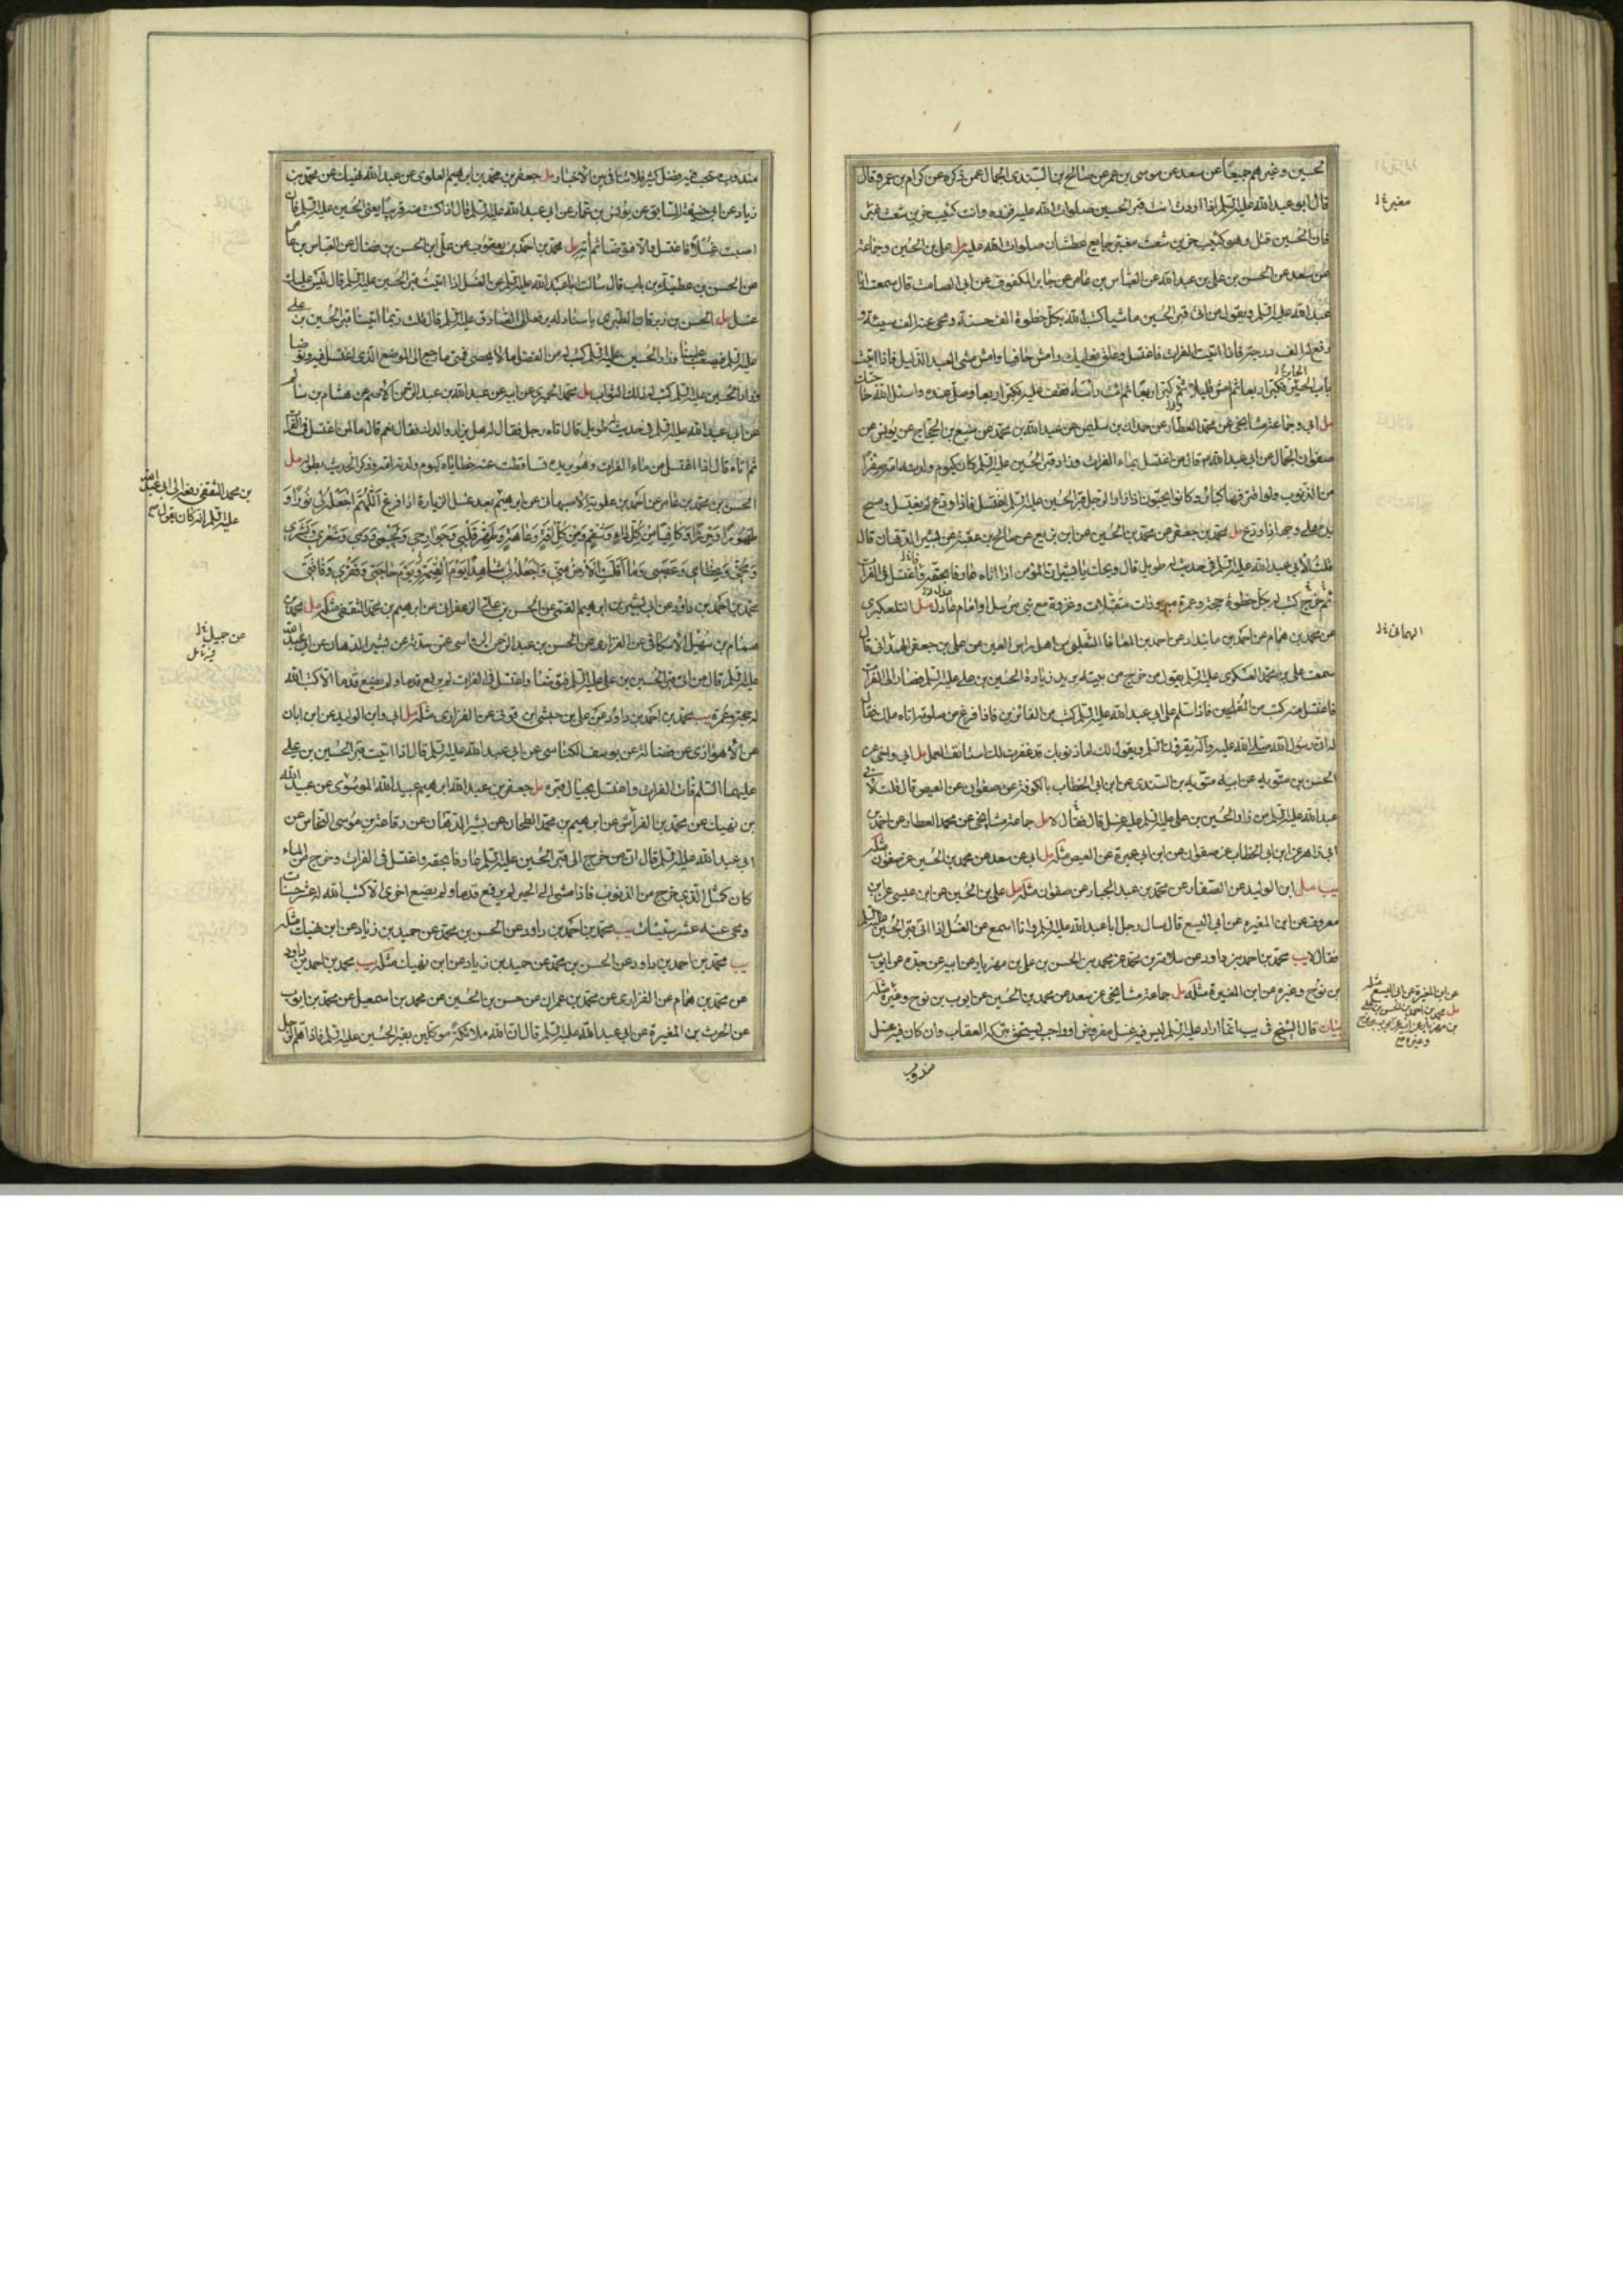 الحسين وغيرهم جميعا عن سعد عن موسى بن عمر عن صالح بن السندى الجمال عمن ذكره عن كرام بن عمرو قال
قال ابو عبد الله عليه السلم اذا اردت انت قبر الحسين صلوات الله عليه فزره وانت كئيب حزين شعث مغبر
فان الحسين قتل وهو كئيب حزين شعث مغبر جايع عطشان صلوات الله عليه مل على بن الحسين وجماعة
عن سعد عن الحسن بن على بن عبد الله عن العباس بن عامر عن جابر المكفوف عن ابى الصامت قال سمعت ابا
عبد الله عليه السلم ويقول من اتى قبر الحسين ماشيا كتب الله بكل خطوة الف حسنة ومحى عنه الف سيئة و
رفع له الف درجة فاذا اتيت الفرات فاغتسل وعلق نعليك وامش حافيا وامش مشى العبد الذليل فاذا اتيت
باب الحير فكبر اربعا ثم امش قليلا ثم كبر اربعا ثم ائت راسه فقف عليه فكبر اربعا وصل عنده واسئل الله حاجتك
مل ابى وجماعة مشايخى عن محمد العطار عن حمدان بن سليمن عن عبد الله بن محمد عن منيع بن الحجاج عن يونس عن
صفوان الجمال عن ابى عبد الله قال من اغتسل بماء الفرات وزار قبر الحسين عليه السلم كان كيوم ولدته امه صفرا
من الذنوب ولو اقترفها كبائر وكانوا يحبون اذا زار الرجل قبر الحسين عليه السلم اغتسل فاذا ودع لم يغتسل ومسح
يده على وجهه اذا ودع مل محمد بن جعفر عن محمد بن الحسين عن ابن بزيع عن صالح بن عقبة عن بشير الدهان قال
قلت لابى عبد الله عليه السلم فى حديث له طويل قال ويحك يا بشير ان المؤمن اذا اتاه عارفا بحقه فاغتسل فى الفرات
ثم خرج كتب له بكل خطوة حجة وعمرة مبرورات متقبلات وغزوة مع نبى مرسل او امام عادل مل التلعكبرى
عن محمد بن همام عن احمد بن مابنداد عن احمد بن المعافا الثعلبى من اهل راس العين عن على بن جعفر الهمدانى قال
سمعت على بن محمد العسكرى عليه السلم يقول من خرج من بيته يريد زيارة الحسين بن على عليه السلم فصار الى الفرات
فاغتسل منه كتب من المفلحين فاذا سلم على ابى عبد الله كتب من الفائزين فاذا فرغ من صلوته اتاه ملك فقال
له ان رسول الله صلى الله عليه وآله يقرئك السلم ويقول لك اما ذنوبك قد غفرت لك استانف العمل مل ابى واخى عن
الحسن بن متويه عن ابيه متويه بن السندى عن ابن ابى الخطاب بالكوفة عن صفوان عن العيص قال قلت لابى
عبد الله عليه السلم من زار الحسين بن على عليه السلم عليه غسل قال فقال لا مل جماعة مشايخى عن محمد العطار عن احمد بن
ابى زاهر عن ابن ابى الخطاب عن صفوان عن ابن ابى عميرة عن العيص مثله مل ابى عن سعد عن محمد بن الحسين عن صفوان مثله
يب مل ابن الوليد عن الصفار عن محمد بن عبد الجبار عن صفوان مثله مل على بن الحسين عن ابن عيسى عن ابن
معروف عن ابن المغيره عن ابى اليسع قال سال رجل ابا عبد الله عليه السلم وانا اسمع عن الغسل اذا اتى قبر الحسين عليه السلم
فقال لا يب محمد بن احمد بن داود عن سلامة بن محمد عن محمد بن الحسن بن على بن مهزيار عن ابيه عن جده عن ايوب
بن نوح وغيره عن ابن المغيرة مثله مل جماعة مشايخى عن سعد عن محمد بن الحسين عن ايوب بن نوح وغيره مثله
بيان قال الشيخ فى يب انما اراد عليه السلم ليس فيه غسل مفروض او واجب يستحق بتركه العقاب وان كان فيه غسل
مندوب
مغبر خ ل
الهمانى خ ل
عن ابن المغيرة عن ابى اليسع مثله
مندوب مرغب فيه وفضل كثير فلا تنافى بين الاخبار مل جعفر بن محمد بن ابرهيم العلوى عن عبد الله نهيك عن محمد بن
زياد عن ابى حنيفة السابق عن يونس بن عمار عن ابى عبد الله عليه السلم قال اذا كنت منه قريبا يعنى الحسين عليه السلم فان
اصبت غسلا فاغتسل والا فتوضا ثم أته مل محمد بن احمد بن يعقوب عن على ابن الحسن بن فضال عن العباس بن عامر
عن الحسن بن عطية بن باب قال سالت ابا عبد الله عليه السلم عن الغسل اذا اتيت قبر الحسين عليه السلم قال ليس عليك
غسل مل الحسن بن زبرقان الطبرى باسناد له يرفعه الى الصادق عليه السلم قال قلت ربما اتينا قبر الحسين بن على
عليه السلم فيصعب علينا وزار الحسين عليه السلم كتب له من الفضل ما لا يحصى فمتى ما رجع الى الموضع الذى اغتسل فيه وتوضا
وزار الحسين عليه السلم كتب له ذلك الثواب مل محمد الحميرى عن ابيه عن عبد الله بن عبد الرحمن الاصم عن هشام بن سالم
عن ابى عبد الله عليه السلم فى حديث له طويل قال اتاه رجل فقال له هل يزار والدك فقال نعم قال ما لمن اغتسل فى الفرات
ثم اتاه قال اذا اغتسل من ماء الفرات وهو يريده تساقطت عنه خطاياه كيوم ولدته امه وذكر الحديث بطوله مل
الحسن بن محمد بن عامر عن احمد بن علوية الاصبهانى عن ابرهيم بعد غسل الزيارة اذا فرغ اللهم اجعله لى نورا و
طهورا وحرزا وكافيا من كل داء وسقم ومن كل افة وعاهة وطهر قلبى وجوارحى ولحمى ودمى وشعرى وبشرى
ومخى وعظامى وعصبى وما اقلت الارض منى واجعله لى شاهدا يوم القيمة ويوم حاجتى وفقرى وفاقتى
محمد بن احمد بن داود عن ابى بشير بن ابرهيم القمى عن الحسن بن على الزعفرانى عن ابرهيم بن محمد الثقفى مثله مل محمد بن
همام بن سهيل الاسكافى عن الفزارى عن الحسن بن عبد الرحمن الرواسى عمن حدثه عن بشير الدهان عن ابى عبد الله
عليه السلم قال من اتى قبر الحسين بن على عليه السلم فتوضا واغتسل فى الفرات لم يرفع قدما ولم يضع قدما الا كتب الله
له حجة وعمرة يب محمد بن احمد بن داود عن على بن حبشى بن قونى عن الفزارى مثله مل ابى وابن الوليد عن ابن ابان
عن الاهوازى عن فضالة عن يوسف الكناسى عن ابى عبد الله عليه السلم قال اذا اتيت قبر الحسين بن على
عليهما السلم فات الفرات واغتسل بحيال قبره مل جعفر بن عبد الله ابرهيم عبيد الله الموسوى عن عبيد الله
بن نهيك عن محمد بن الفراش عن ابرهيم بن محمد الطحان عن بشير الدهان عن رفاعة بن موسى النخاس عن
ابى عبد الله عليه السلم قال ان من خرج الى قبر الحسين عليه السلم عارفا بحقه واغتسل فى الفرات وخرج من الماء
كان كمثل الذى خرج من الذنوب فاذا مشى الى الحير لم يرفع قدما ولم يضع اخرى الا كتب الله له عشر حسنات
ومحى عنه عشر سيئات يب محمد بن احمد بن داود عن الحسن بن محمد عن حميد بن زياد عن ابن نهيك مثله
يب محمد بن احمد بن داود عن الحسن بن محمد عن حميد بن زياد عن ابن نهيك مثله يب محمد بن احمد بن داود
عن محمد بن همام عن الفزارى عن محمد بن عمران عن حسن بن الحسين عن محمد بن اسمعيل عن محمد بن ايوب
عن الحرث بن المغيرة عن ابى عبد الله عليه السلم قال ان لله ملائكة موكلين بقبر الحسين عليه السلم فاذا هم الرجل
بن محمد الثقفى رفعه الى ابى عبد الله
عليه السلم انه كان يقول
عن جميل خ ل